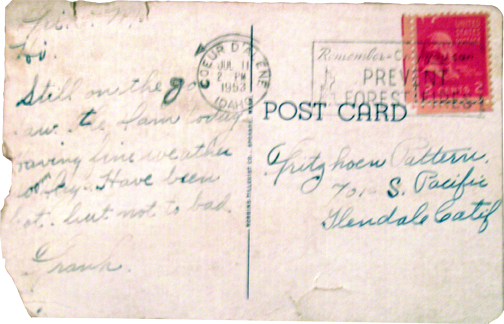 Hi.
Still on the go
saw the dam today
having fine weather
today. Have been
hot. but not to bad
Frank.
COEUR D'ALENE
JUL 11
2 PM
1953
IDAHO
Remember - Only you can
PREVENT
FOREST
UNITED
STATES
2 CENTS 2
POST CARD
Fritz hoen Pattern.
701 S. Pacific
Glendale Calif